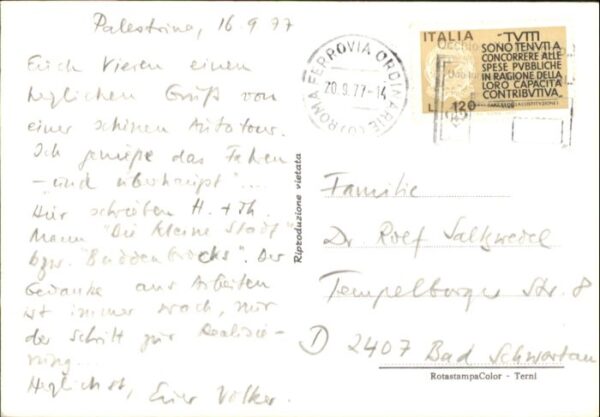 Palestrina, 16.9.77
Euch Vieren einen
herzlichen Gruß von
einer schönen Autotour.
Ich genieße das Fahren
- und überhaupt"....
Hier schrieben H. + Th.
Mann "Die kleine Stadt"
bzw. "Buddenbrocks". Der
Gedanke ans Arbeiten
ist immer wach, nur
der Schritt zur Realisie-
rung...
Herzlichst, Euer Volker.
ITALIA
TUTTI
SONO TENUTI A
CONCORRERE ALLE
SPESE PUBBLICHE
IN RAGIONE DELLA
LORO CAPACITÀ
CONTRIBUTIVA.
L. 120
ROMA FERROVIA ORDINARIE
20.9.77-14
Riproduzione vietata
Familie
Dr. Rolf Saltzwedel
Tempelburger Str. 8
D 2407 Bad Schwartau
RotastampaColor - Terni